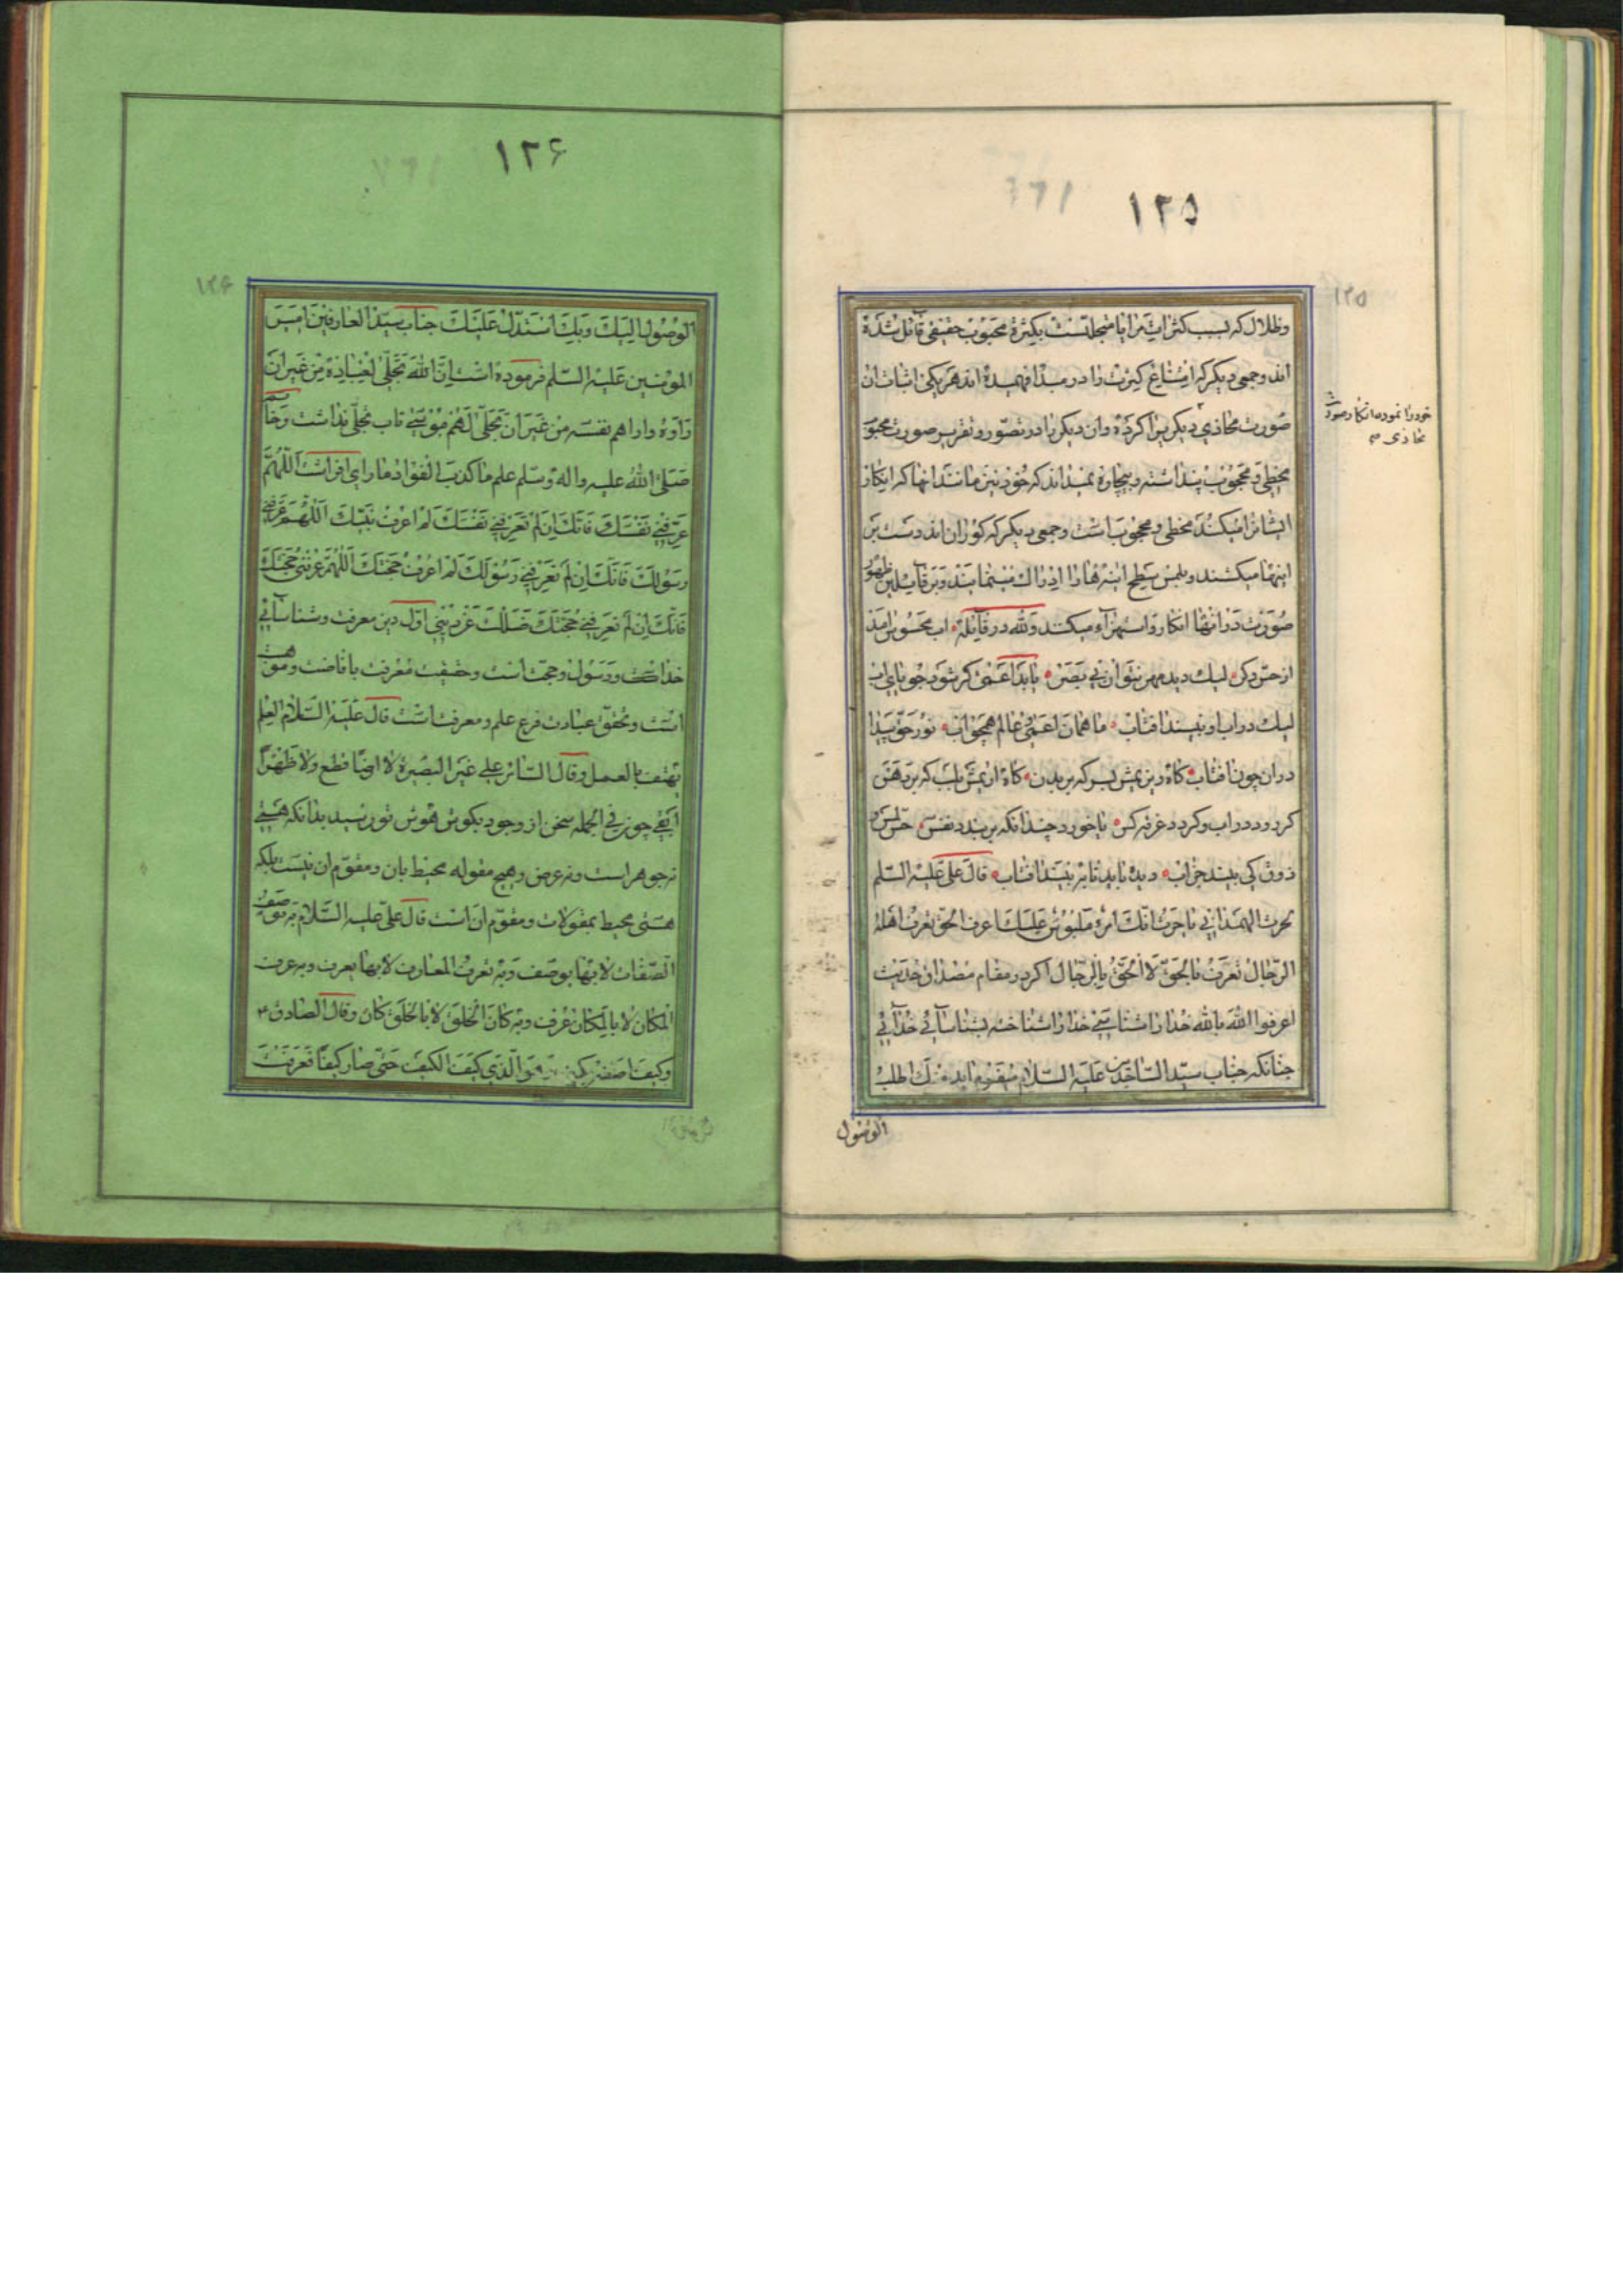 ١٢٥
١٢٥
وظلال که بسبب کثرات مرایا متجلاتست بکثرة محبوب حقیقی قائل شده
اند وجمعی دیگر که امتناع کثرت را در مبدا فهمیده اند هر یکی اثبات ان
صورت محاذی دیگر یرا کرده وان دیگر یرا در تصور وتقریر صورت محبوب
مخطی ومحجوب پنداشته وبیچاره نمیداند که خود نیز مانند انها که انکار
ایشانرا میکند مخطی ومحجوب است وجمعی دیگر که کوران اند ودست بر
اینها میکشند وبلمس سطح اینه ها را ادراک مینمایند وبر قایلین ظهور
صورت در انها انکار واستهزاء میکنند ولله در قائله اب محسوس امد
از حس دکر لیک دید مهر نتوان بی بصر یابد اعمی کر شود جویای اب
لیک در اب او نبیند افتاب ما همان اعمی وعالم همچو اب نور حق پیدا
در ان چون افتاب کاه زین یمش بسر که بر بدن کاه ازیمش بلب که بر دهن
کر رود در اب وکردد غرقه کس یا خورد چندانکه بر بندد نفس حس لمس و
ذوق کی بیند جز اب دیده باید تا ببیند افتاب قال علی علیه السلم
لحرث الهمدانی یا حرث انک امرؤ ملبوس علیک اعرف الحق تعرف اهله
الرجال تعرف بالحق لا الحق بالرجال اکر در مقام مصداق حدیث
اعرفوا الله بالله خدا را شناسی خدا را شناخته بشناسائی خدائی
چنانکه جناب سید الساجدین علیه السلام میفرماید منک اطلب
خود را نموده انکار صورت
محاذی
الوصول
١٢۶
١٢۶
الوصول الیک وبک استدل علیک جناب سید العارفین امیر
المومنین علیه السلم فرموده است ان الله تجلی لعباده من غیر ان
راوه واراهم نفسه من غیر ان یتجلی لهم موسی تاب تجلی نداشت وخاتم
صلی الله علیه واله وسلم علم ما کذب الفواد ما رای افراشت اللهم
عرفنی نفسک فانک ان لم تعرفنی نفسک لم اعرف نبیک اللهم عرفنی
رسولک فانک ان لم تعرفنی رسولک لم اعرف حجتک اللهم عرفنی حجتک
فانک ان لم تعرفنی حجتک ضللت عن دینی اول دین معرفت وشناسائی
خداست ورسول وحجت است وحقیقت معرفت بافاضت وموهبت
است وتحقق عبادت فرع علم ومعرفت است قال علیه السلام العلم
یهتف بالعمل وقال السائر علی غیر البصیرة لا ارضا قطع ولا ظهرا
ابقی چون فی الجمله سخن از وجود بکوش هوش تو رسید بدانکه هستی
نه جوهر است ونه عرض وهیچ مقوله محیط بان ومقوم ان نیست بلکه
هستی محیط بمقولات ومقوم ان است قال علی علیه السلام به توصف
الصفات لا بها یوصف وبه تعرف المعارف لا بها یعرف وبه عرف
المکان لا بالمکان عرف وبه کان الخلق لا بالخلق کان وقال الصادق ع
وکیف اصفه بکیف وهو الذی کیف الکیف حتی صار کیفا فعرفت